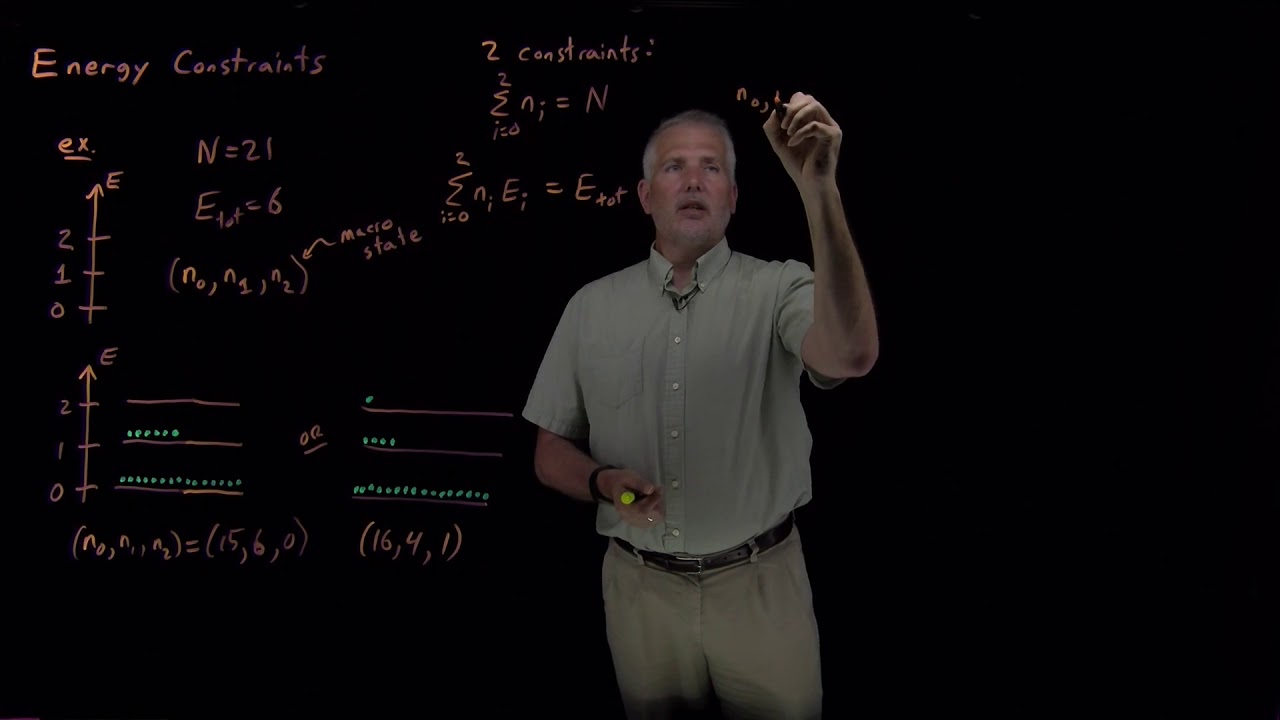 Energy Constraints
ex.
N = 21
E_tot = 6
(n_0, n_1, n_2)
macro state
E
2
1
0
E
2
1
0
OR
(n_0, n_1, n_2) = (15, 6, 0)
(16, 4, 1)
2 constraints:
2
∑ n_i = N
i=0
2
∑ n_i E_i = E_tot
i=0
n_0,